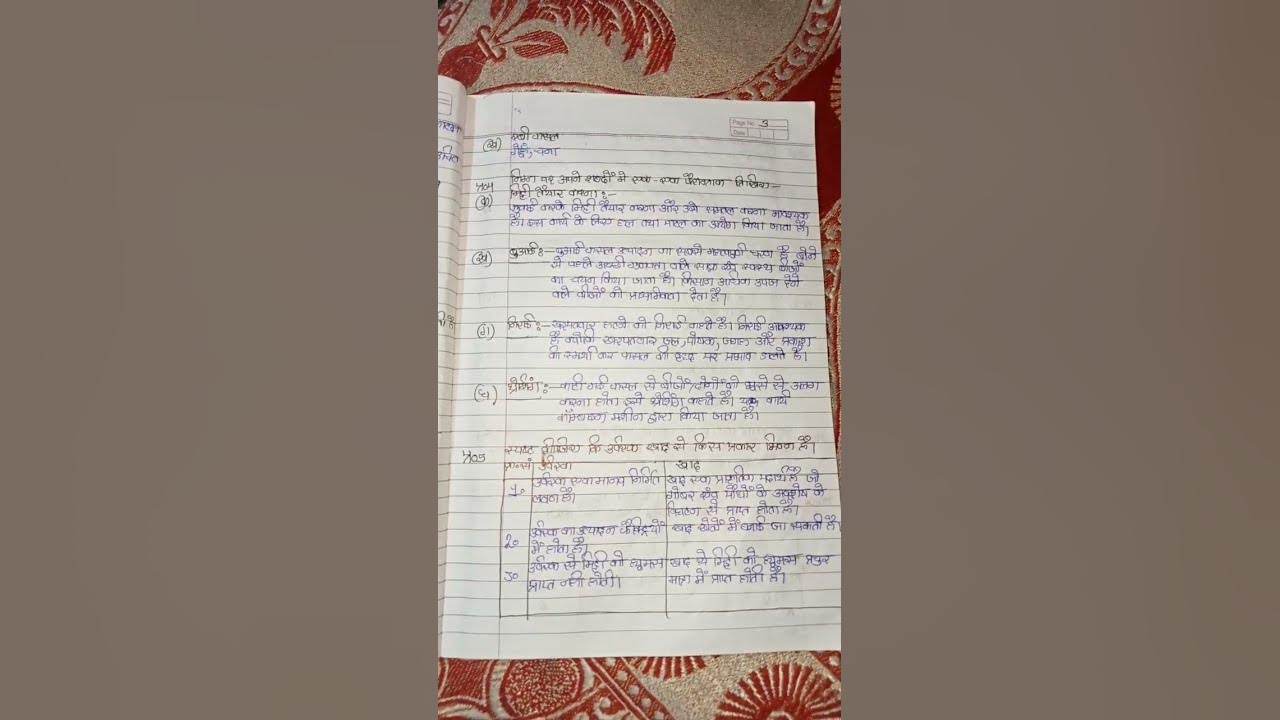 Page No 3
Date
(ख) रबी फसल
गेहूँ, चना
प्र०4 निम्न पर अपने शब्दों में एक-एक पैराग्राफ लिखिए-
(क) मिट्टी तैयार करना:-
जुताई करके मिट्टी तैयार करना और उसे समतल करना आवश्यक
है। इस कार्य के लिए हल तथा पाटल का प्रयोग किया जाता है।
(ख) बुआई:- बुआई फसल उत्पादन का सबसे महत्वपूर्ण चरण है बोने
से पहले अच्छी गुणवत्ता वाले साफ एवं स्वस्थ बीजों
का चयन किया जाता है। किसान अधिक उपज देने
वाले बीजों को प्राथमिकता देता है।
(ग) निराई:- खरपतवार हटाने को निराई कहते है। निराई आवश्यक
है क्योंकि खरपतवार जल, पोषक, जगह और प्रकाश
की स्पर्धा कर फसल की वृद्धि पर प्रभाव डालते है।
(घ) थ्रेशिंग:- काटी गई फसल से बीजों/दानों को भूसे से अलग
करना होता इसे थ्रेशिंग कहते है। यह कार्य
कॉम्बाइन मशीन द्वारा किया जाता है।
प्र०5 स्पष्ट कीजिए कि उर्वरक खाद से किस प्रकार भिन्न है।
क्र०सं उर्वरक खाद
1० उर्वरक एक मानव निर्मित खाद एक प्राकृतिक पदार्थ है जो
लवण है। गोबर एवं पौधों के अवशेष के
विघटन से प्राप्त होता है।
2० उर्वरक का उत्पादन फैक्ट्रियों खाद खेतों में बनाई जा सकती है।
में होता है।
3० उर्वरक से मिट्टी को ह्यूमस खाद से मिट्टी को ह्यूमस प्रचुर
प्राप्त नहीं होती। मात्रा में प्राप्त होती है।